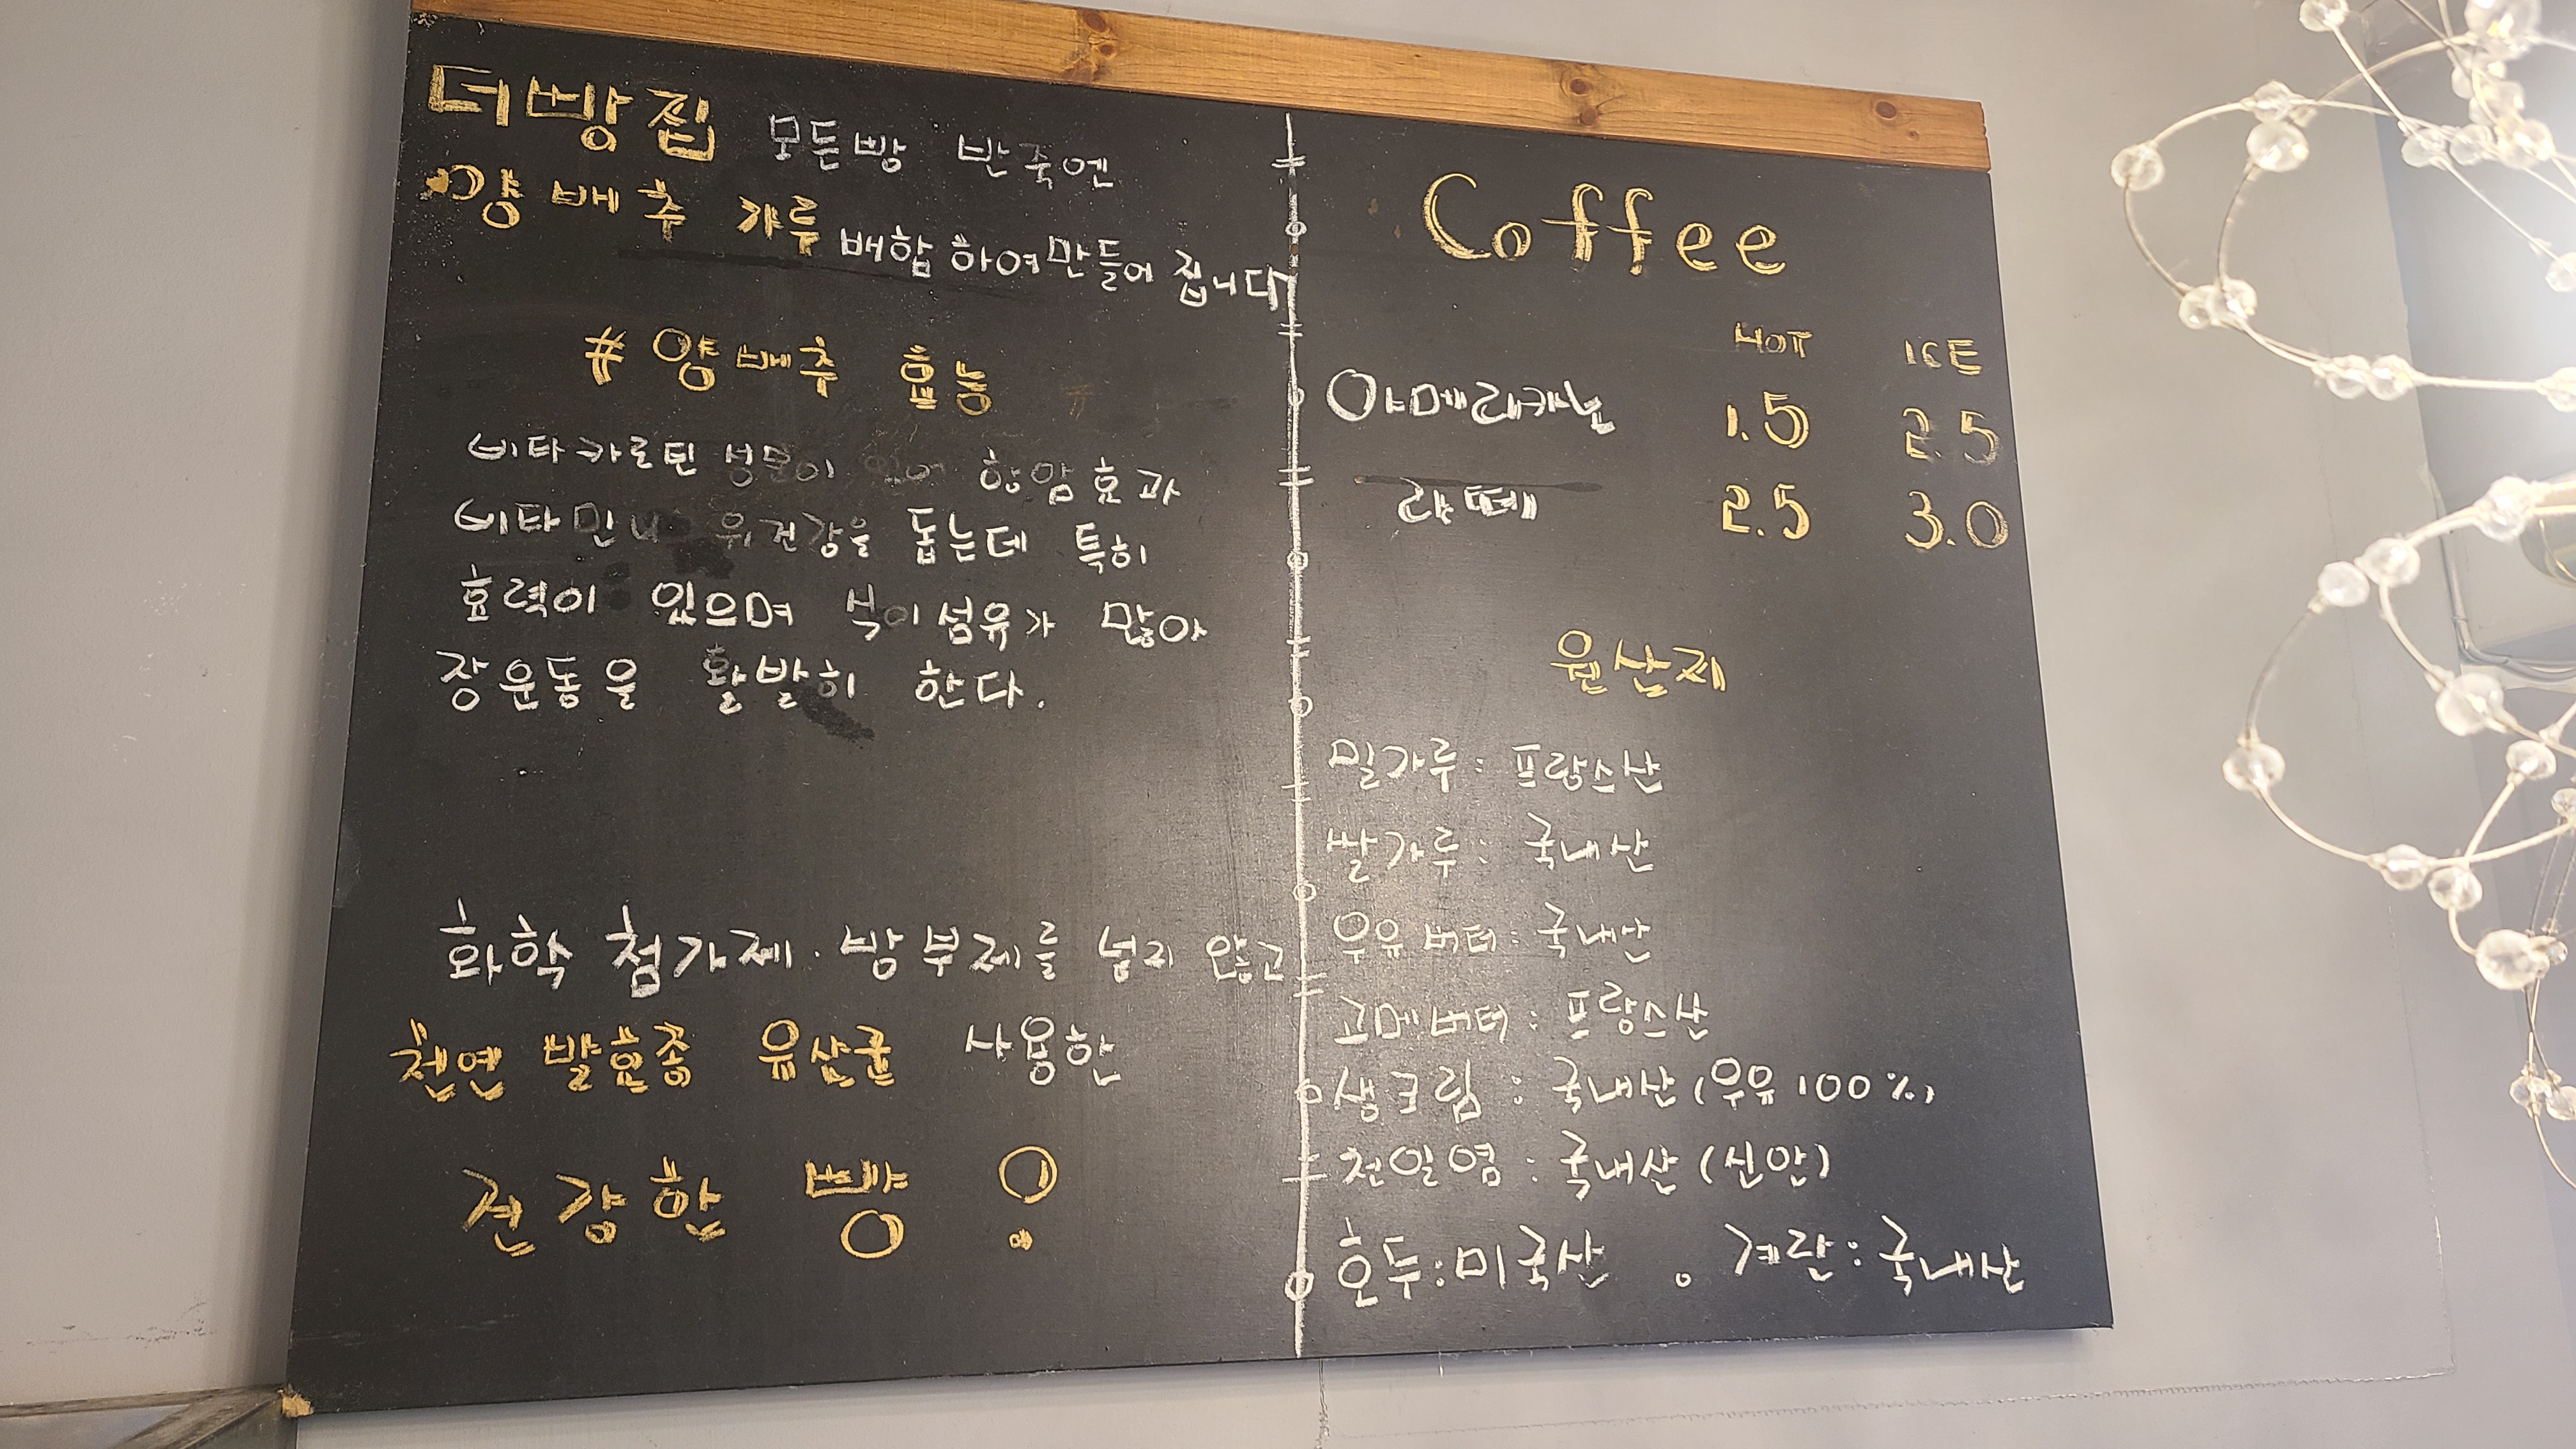 더빵집 모든빵 반죽엔
양배추 가루 배합하여 만들어 집니다
# 양배추 효능
비타카로틴 성분이 있어 항암효과
비타민 위건강을 돕는데 특히
효력이 있으며 식이섬유가 많아
장운동을 활발히 한다.
화학 첨가제. 방부제를 넣지 않고
천연 발효종 유산균 사용한
건강한 빵 !
Coffee
HOT ICE
아메리카노 1.5 2.5
라떼 2.5 3.0
원산지
밀가루: 프랑스산
쌀가루: 국내산
우유버터: 국내산
고메버터: 프랑스산
생크림: 국내산 (우유 100%)
천일염: 국내산 (신안)
호두: 미국산 . 계란: 국내산